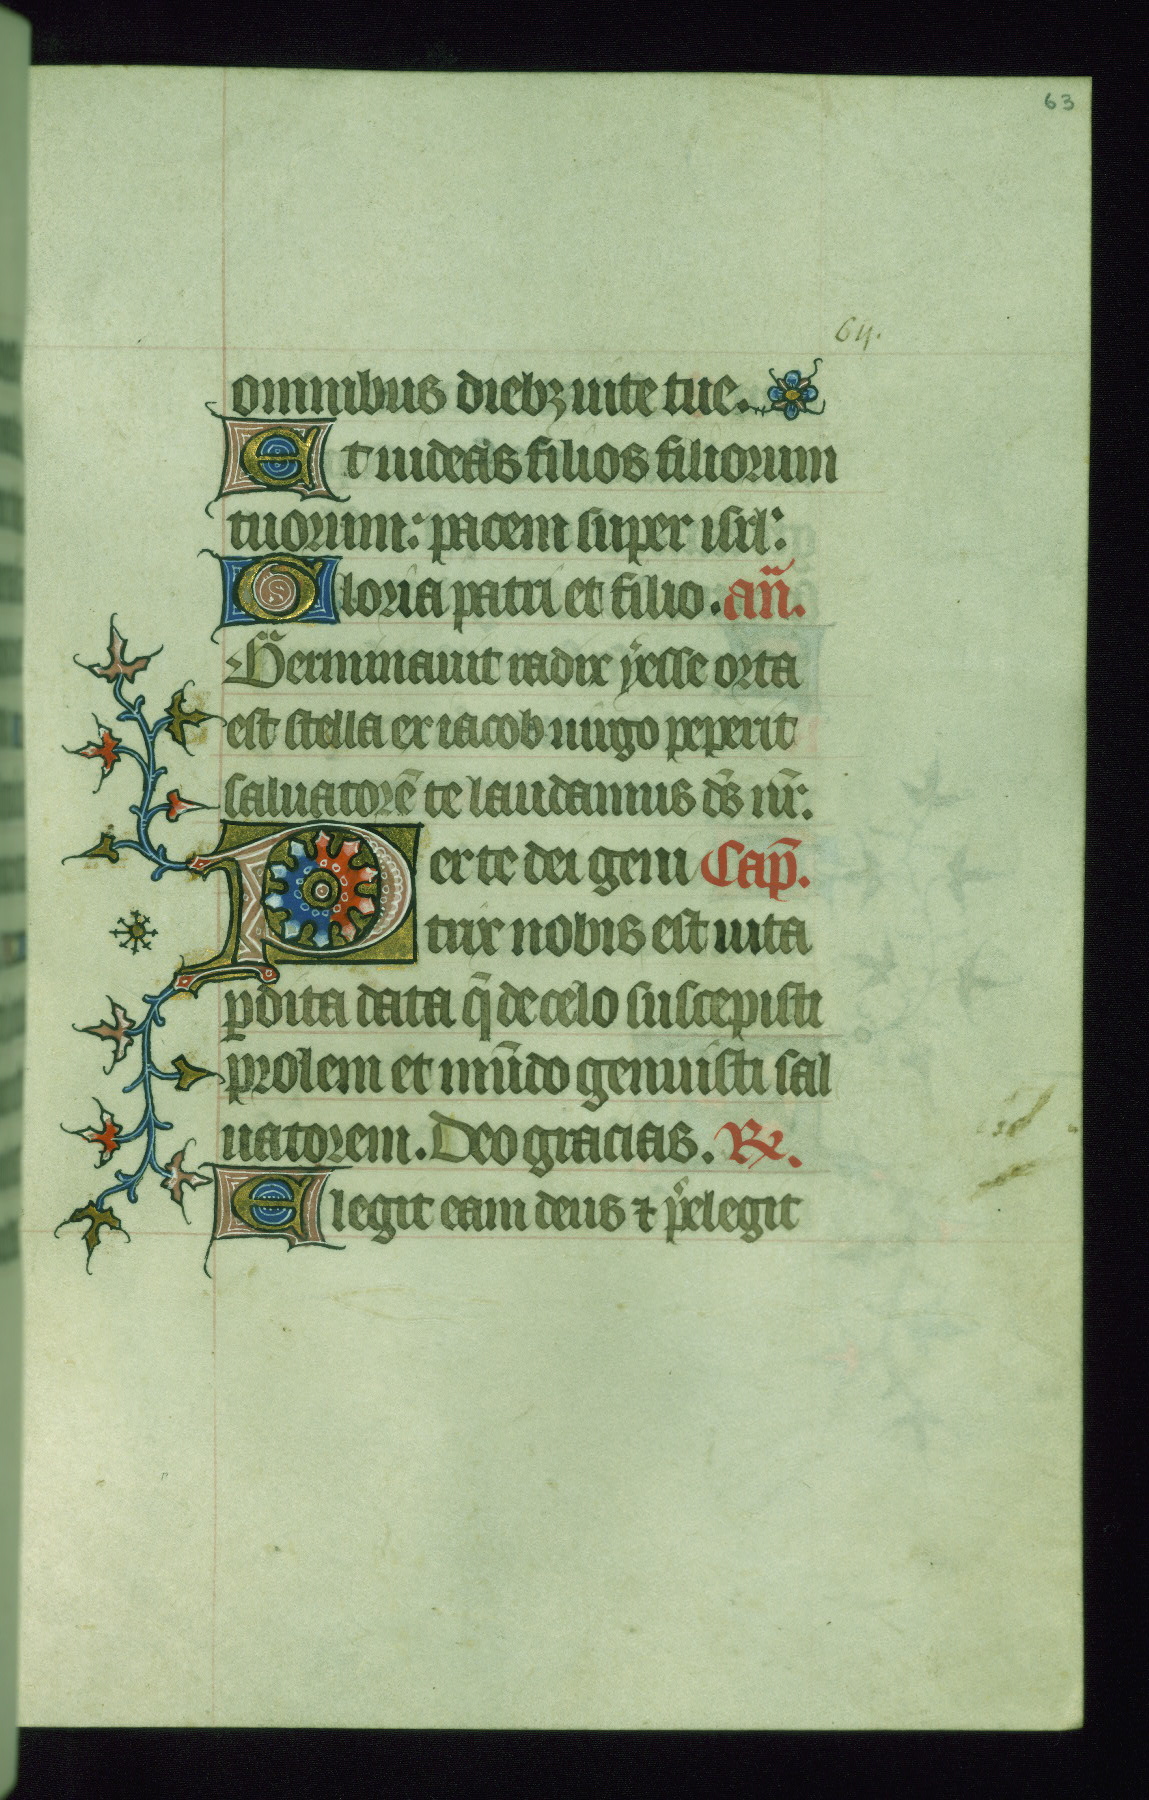 63
64.
omnibus diebꝫ uite tue.
Et uideas filios filiorum
tuorum: pacem super isrl̾:
Gloria patri et filio. an̄.
Germinauit radix yesse orta
est stella ex iacob uirgo peperit
saluatorē te laudamus ds̄ nr̄:
Per te dei geni Cap̄.
trix nobis est uita
ꝑdita data q̄ de celo suscepisti
prolem et mūdo genuisti sal
uatorem. Deo gracias. Rx.
Elegit eam deus ⁊ p̄elegit